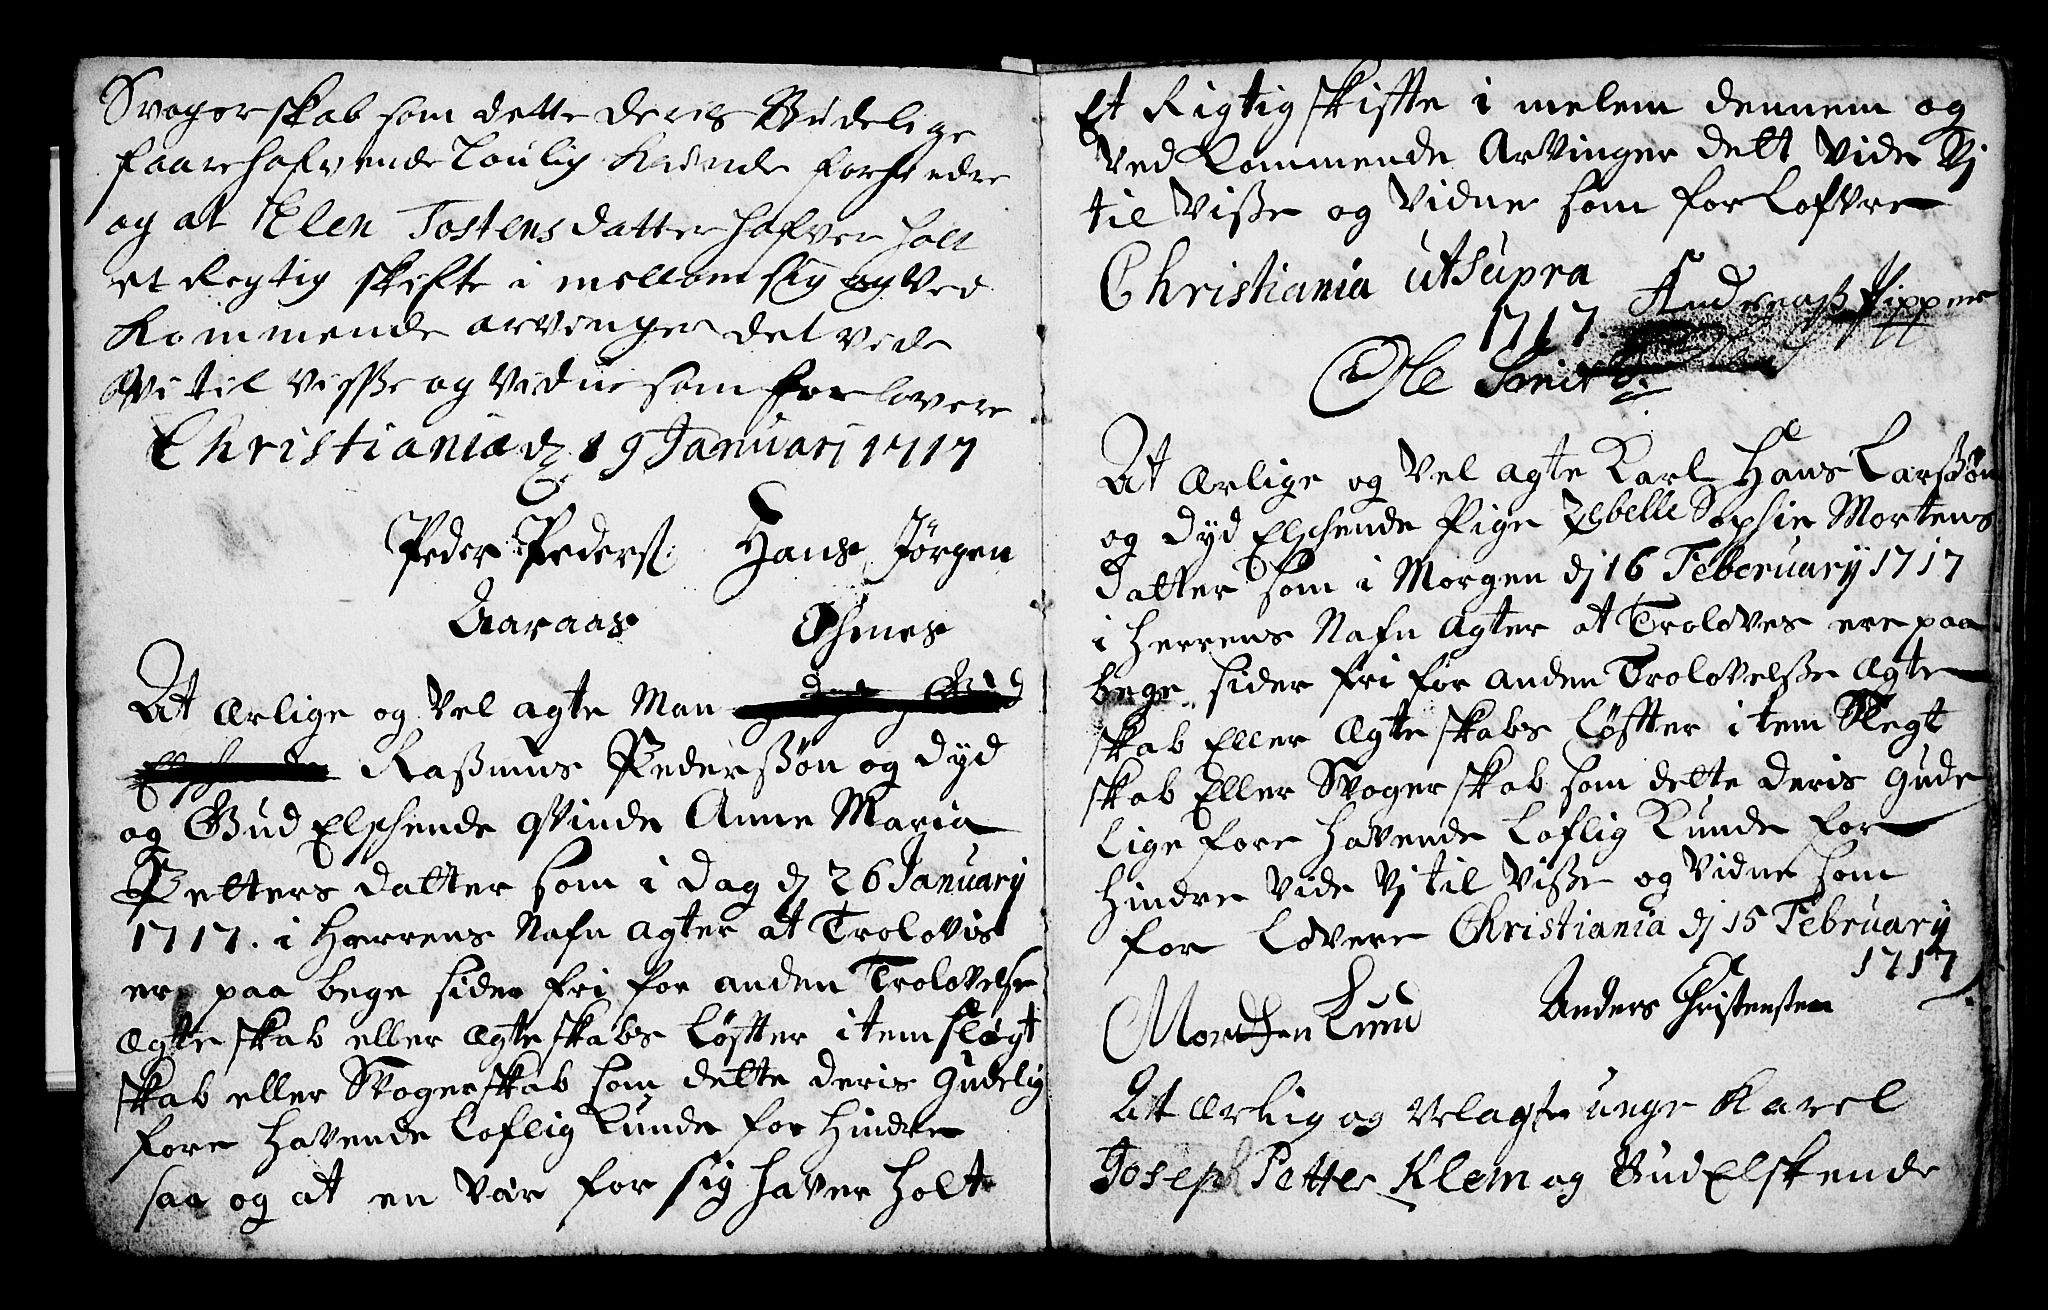 Svogerskab som dette deris Gudelige
faarehafvende Loulig Kunde forhindre
og at Elen Tostens datter hafver holt
et Regtig skifte i mellom sig og Ved
Kommende arvinger det vede
Wi til visse og vidne som for lovere
Christiania dz 19 Januarj 1717
Peder Peders: Hans Jørgen
Aaraas
At ærlige og vel agte Man
Rasmus Pedersøn og dyd
og Gud Elschende qvinde Anne Maria
Petters datter som i dag dj 26 Januarij
1717. i Herrens Nafn agter at Trolovis
er paa bege sider fri for anden Trolovelse
ægte skab eller ægte skabs Løfter item slægt
skab eller Svogerskab som dette deris Gudelig
fore havende Loflig Kunde for hindre
saa og at en vær for sig haver holt
Et Rigtig skiffte i melem dennem og
Ved Kommende Arvinger dett Vide Vj
til Visse og Vidne som for Lofvre
Christiania ut supra
1717. Andreas Pipper
Ole Smit
At ærlige og Vel agte Karl Hans Larsøn
og dyd Elschende Pige Zebelle Sophie Mortens
datter som i Morgen dj 16 Feberuarij 1717
i Herrens Nafn Agter at Troloves ere paa
bege sider fri for anden Trolovelse ægte
skab Eller ægte skabs Løffter item Slegt
skab Eller Svoger skab som dette deris gude
lige fore havende Loflig Kunde for
hindre Vide Vj til Visse og Vidne som
for Lovere Christiania dj 15 Februarij
1717
Morthen Lund Anders Christensen
At ærlig og Velagte unge Karel
Joseph Petter Klem og Gud Elskende